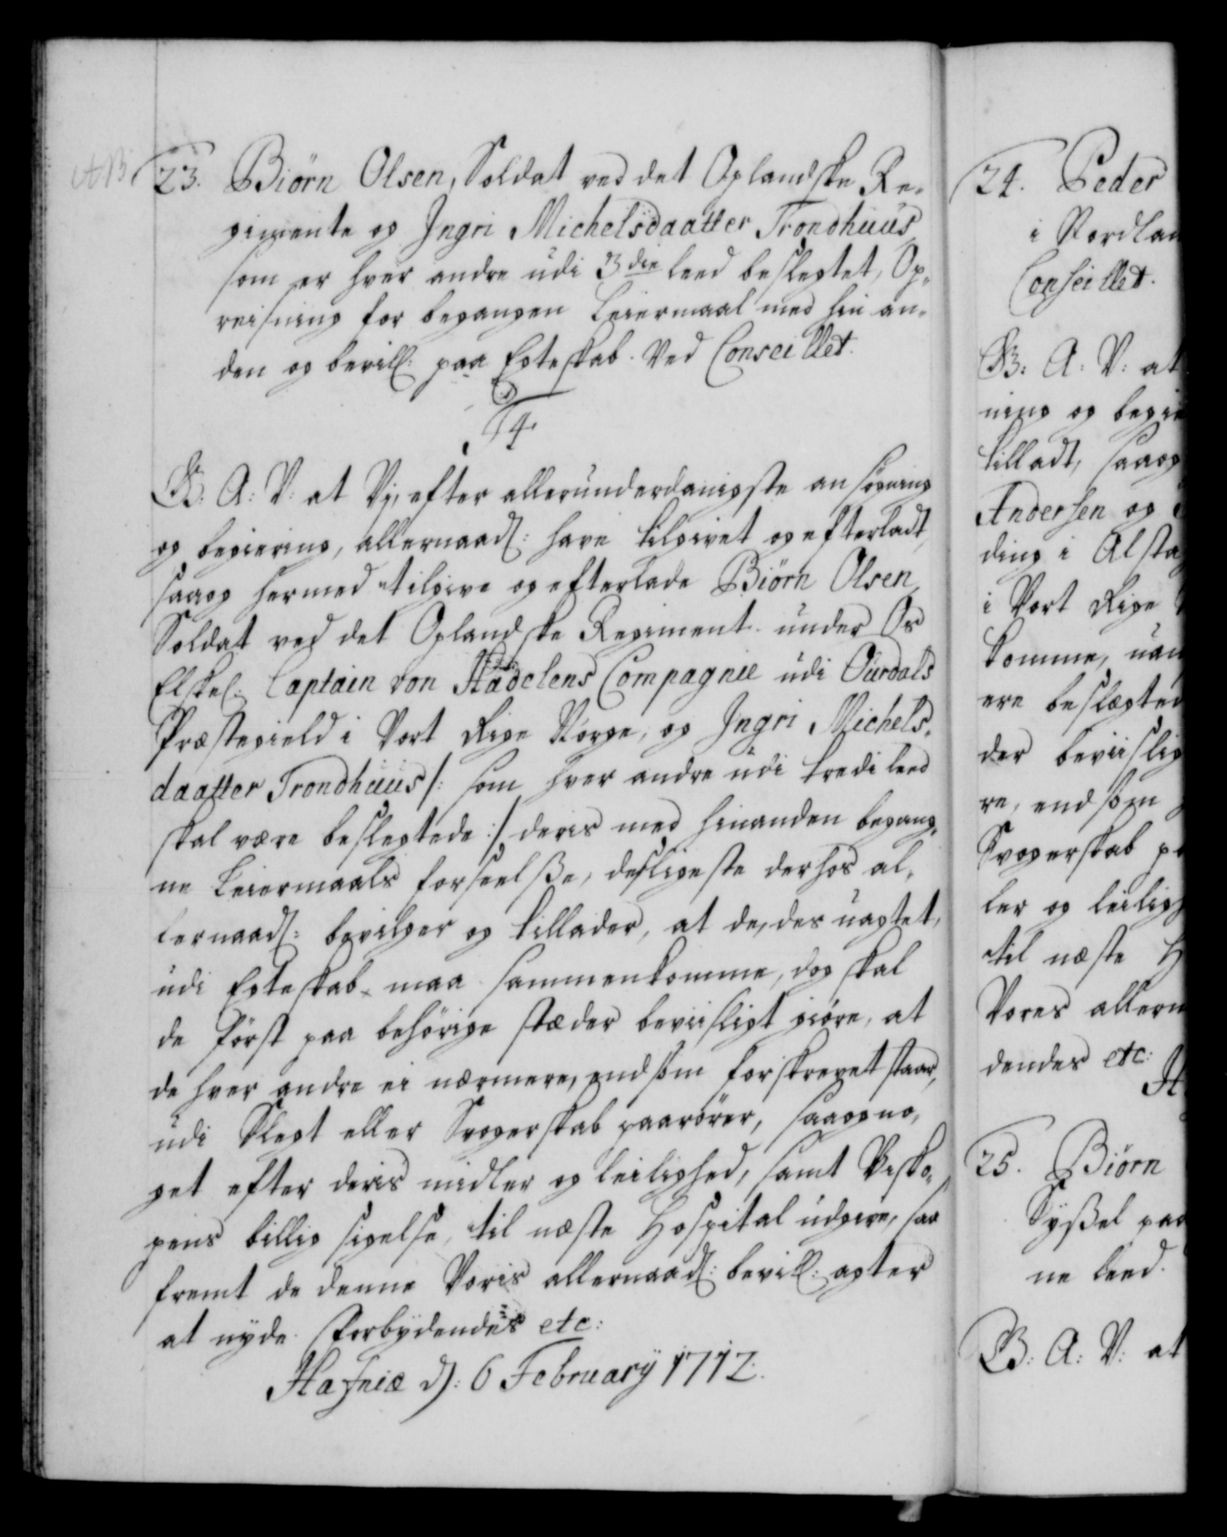 23. Biørn Olsen, Soldat ved det Oplandske Re-
gimente og Jngri Michelsdaatter Trondhuus,
som er hver andre udi 3die leed beslegtet, Op-
reisning for begangen Leiermaal med hin an-
den og bevill: paa Egteskab. Ved Conseillet.
G. A: V: at Vj, efter allerunderdanigste ansøgning
og begiering, allernaad: have tilgivet og efterladt,
saaog hermed tilgive og efterlade Biørn Olsen,
Soldat ved det Oplandske Regiment under Os
Elskel: Captain von Hadelens Compagnie udi Ourdals
Præstegield i Vort Rige Norge, og Jngri Michels-
daatter Trondhuus /: som hver andre udi tredi leed
skal være beslegtede :/ deris med hinanden begang-
ne Leiermaals forseelße, desligeste derhos al-
lernaad: bevilger og tillader, at de, des uagtet,
udi Egteskab maa sammenkomme, dog skal
de først paa behörige stæder beviisligt giøre, at
de hver andre ei nærmere, end som forskrevet staar,
udi Slegt eller Svogerskab paarörer, saaog no-
get efter deris midler og leilighed, samt Bisko-
pens billig sigelse, til næste Hospital udgive, saa
fremt de denne Voris allernaad: bevill: agter
at nyde. Forbydendes etc:
Hafniæ d: 6 February 1712.
24. Peder
i Nordlan
Conseillet.
G: A: V: at
ning og begie
tilladt, saaog
Andersen og
ding i Alsta
i Vort Rige
komme, uan
ere beslægted
der beviislig
re, end som
Svogerskab p
ler og leiligh
til næste H
Vores allern
dendes etc:
H
25. Biørn
Syßel paa
ne leed.
G: A: V: at